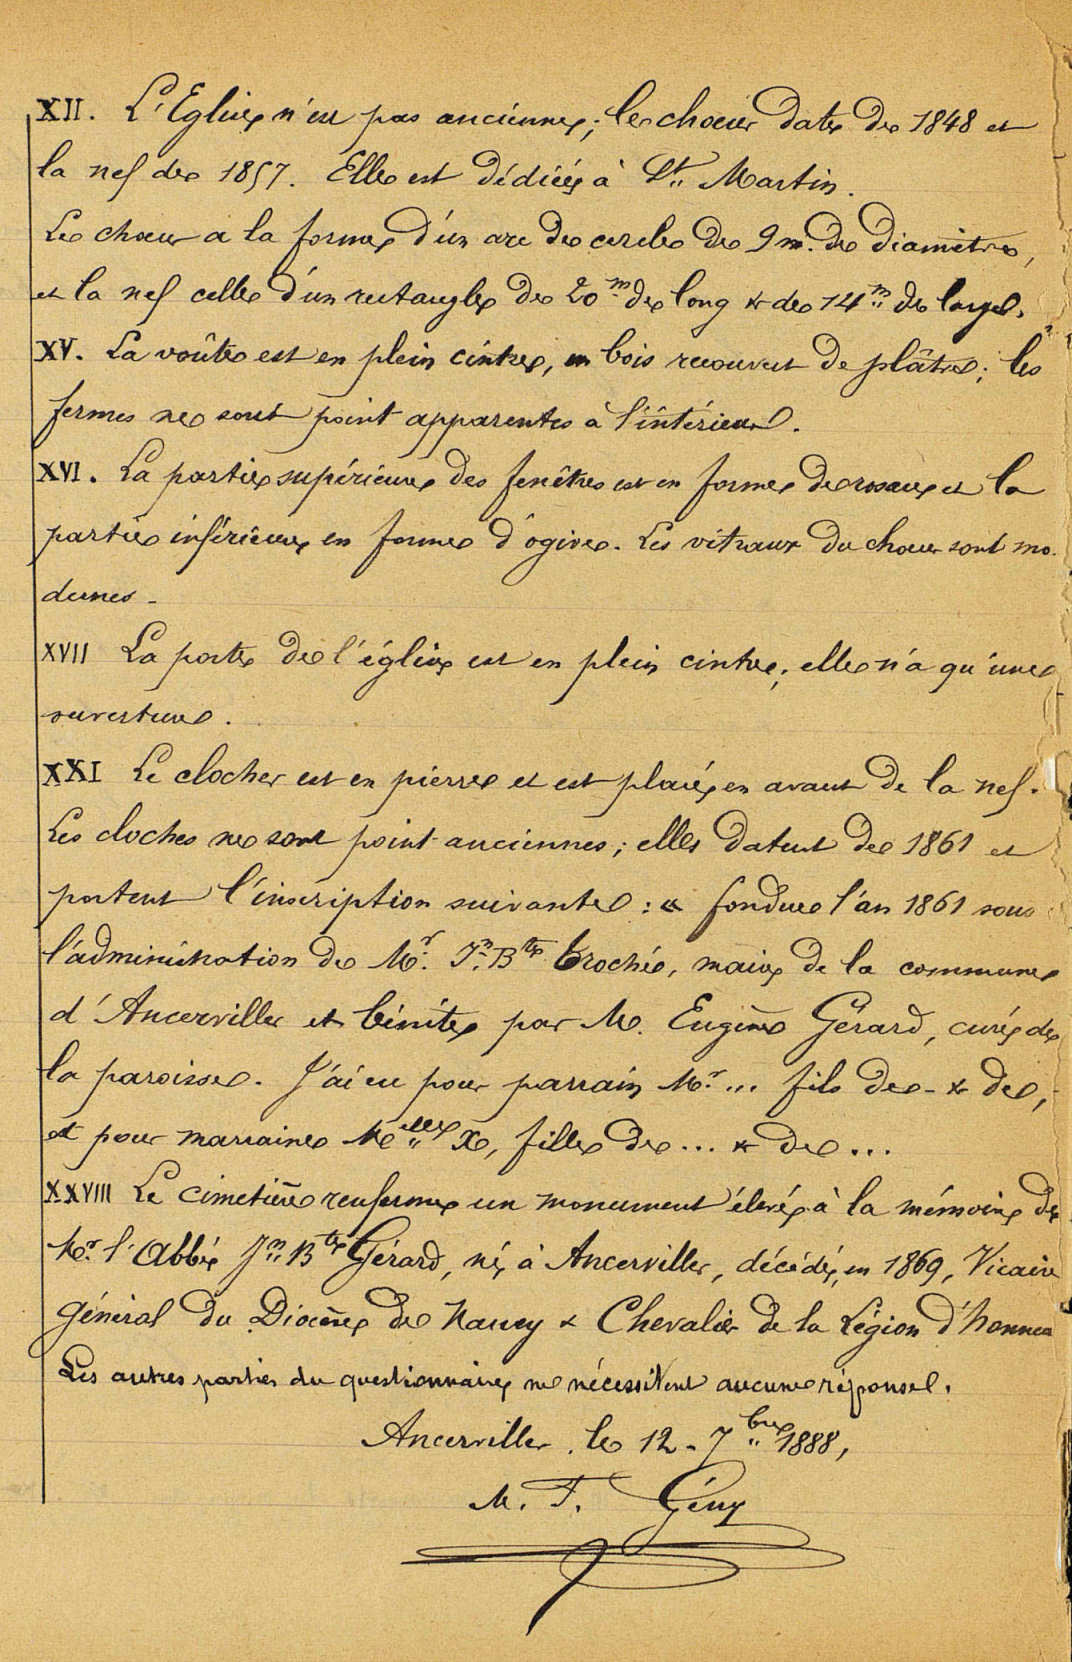 XII. L'Eglise n'est pas ancienne; le chœur date de 1848 et
la nef de 1857. Elle est dédiée à St. Martin.
Le chœur a la forme d'un arc de cercle de 9 m. de diamètre,
et la nef celle d'un rectangle de 20 m de long & de 14 m de large.
XV. La voûte est en plein cintre, en bois recouvert de plâtre; les
fermes ne sont point apparentes à l'intérieur.
XVI. La partie supérieure des fenêtres est en forme de rosace et la
partie inférieure en forme d'ogive. Les vitraux du chœur sont mo-
dernes.
XVII La porte de l'église est en plein cintre; elle n'a qu'une
ouverture.
XXI Le clocher est en pierre et est placé en avant de la nef.
Les cloches ne sont point anciennes; elles datent de 1861 et
portent l'inscription suivante: « fondue l'an 1861 sous
l'administration de Mr. Jn. Bte Croché, maire de la commune
d'Ancerviller et bénite par M. Eugène Gérard, curé de
la paroisse. J'ai eu pour parrain Mr... fils de - & de,
et pour marraine Melle X, fille de... & de...
XXVIII Le cimetière renferme un monument élevé à la mémoire de
Mr. l'Abbé Jn. Bte Gérard, né à Ancerviller, décédé en 1869, Vicaire
général du Diocèse de Nancy & Chevalier de la Légion d'honneur
Les autres parties du questionnaire ne nécessitent aucune réponse.
Ancerviller, le 12 - 7bre 1888,
M. F. Gény